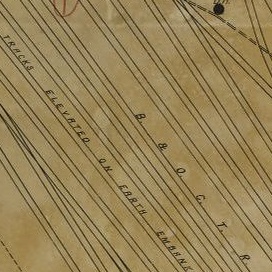 TRACKS
ELEVATED ON EARTH EMBANK
B. & O. C. T. R.